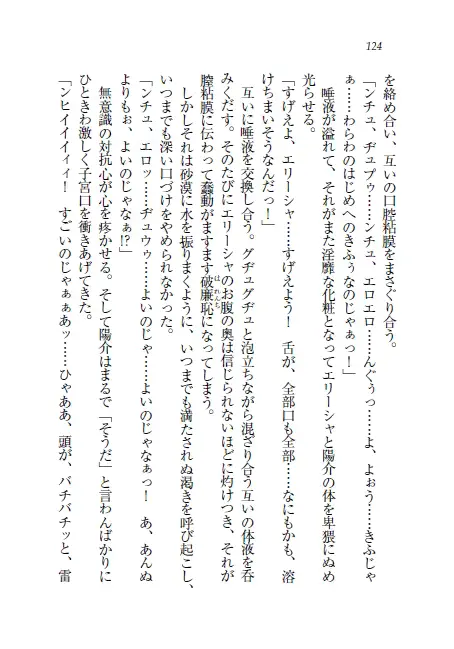 124
を絡め合い、互いの口腔粘膜をまさぐり合う。
「ンチュ、ヂュプゥ……ンチュ、エロエロ……んぐぅっ……よ、よぉう……きふじゃ
ぁ……わらわのはじめへのきふぅなのじゃぁっ！」
唾液が溢れて、それがまた淫靡な化粧となってエリーシャと陽介の体を卑猥にぬめ
光らせる。
「すげえよ、エリーシャ……すげえよう！　舌が、全部口も全部……なにもかも、溶
けちまいそうなんだっ！」
互いに唾液を交換し合う。グヂュグヂュと泡立ちながら混ざり合う互いの体液を呑
みくだす。そのたびにエリーシャのお腹の奥は信じられないほどに灼けつき、それが
膣粘膜に伝わって蠢動がますます破廉恥になってしまう。
はれんち
しかしそれは砂漠に水を振りまくように、いつまでも満たされぬ渇きを呼び起こし、
いつまでも深い口づけをやめられなかった。
「ンチュ、エロッ……ヂュウゥ……よいのじゃ……よいのじゃなぁっ！　あ、あんぬ
よりもぉ、よいのじゃなぁ!?」
無意識の対抗心が心を疼かせる。そして陽介はまるで「そうだ」と言わんばかりに
ひときわ激しく子宮口を衝きあげてきた。
「ンヒイイイィィ！　すごいのじゃぁぁあッ……ひゃああ、頭が、バチバチッと、雷